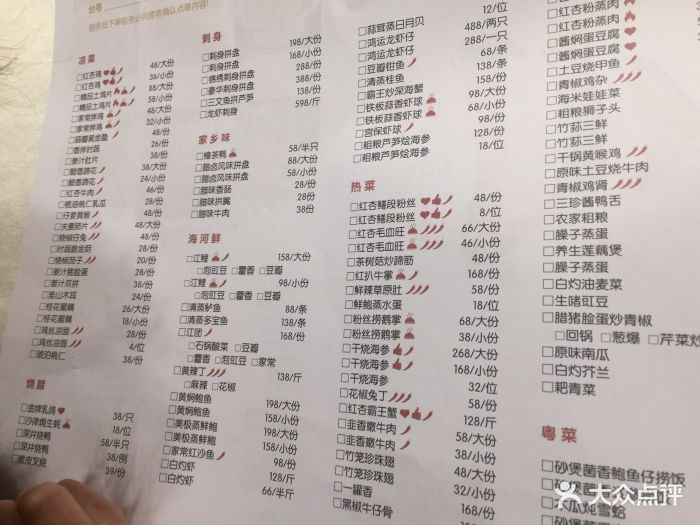 台号
服务员下单前务必向顾客确认点单内容!
凉菜
□红杏鸡 48/大份
□红杏鸡 36/小份
□精品土鸡片 88/大份
□精品土鸡片 58/小份
□家常拌鸡 48/大份
□家常拌鸡 32/小份
□蒜瓣黄金脆 48/份
□香拌时蔬 26/份
□姜汁肚片 38/份
□醋香蹄花
□醋香蹄花 24/小份
□红杏牛肉 46/份
□榄油桃仁乳瓜 28/份
□仔姜黄喉
□夫妻肺片
□烧椒仔兔 48/份
□时蔬脆菌菇 28/份
□烧椒茄子 20/份
□姜汁猪脸蛋
□姜汁双拼 38/份
□淮山木耳 24/份
□桂花蜜藕 26/大份
□桂花蜜藕 18/小份
□鸡丝凉面 28/份
□鸡丝凉面 4/位
□琥珀桃仁 38/份
烧腊
□金牌乳鸽 38/只
□沙律焗生蚝 18/位
□深井烧鸭 58/半只
□深井烧鸭 38/例
□脆皮叉烧 39/份
刺身
□刺身拼盘 198/大份
□刺身拼盘 168/小份
□锦绣刺身拼盘 288/份
□豪华刺身拼盘 388/份
□三文鱼刺身 98/份
□龙虾刺身 598/斤
家乡味
□樟茶鸭 58/半只
□腊卤风味拼盘 88/大份
□腊卤风味拼盘 58/小份
□腊味香肠 28/份
□腊味拱嘴 28/份
□腊味牛肉 38/份
海河鲜
□江鲤 158/大份
□泡豇豆 □藿香 □豆瓣
□江鲤 98/小份
□泡豇豆 □藿香 □豆瓣
□清蒸鲈鱼 88/条
□清蒸多宝鱼 138/条
□江团 168/份
□石锅酸菜 □豆瓣
□藿香 □泡豇豆 □家常
□黄辣丁 138/斤
□麻辣 □花椒
□黄焖鲍鱼 198/大份
□黄焖鲍鱼 138/小份
□美极蒸鲜鲍 198/大份
□美极蒸鲜鲍 138/小份
□家常红沙鱼 98/份
□白灼虾 128/斤
□白灼虾 66/半斤
□蒜茸蒸日月贝 12/位
□鸿运龙虾仔 488/两只
□鸿运龙虾仔 288/一只
□豆瓣钳鱼 68/条
□清蒸桂鱼 138/条
□霸王炒深海蟹 108/份
□铁板蒜香虾球 98/大份
□铁板蒜香虾球 68/小份
□宫保虾球 98/份
□粗粮芦笋烩海参 128/份
□粗粮芦笋烩海参 18/位
热菜
□红杏鳝段粉丝 48/份
□红杏鳝段粉丝 8/位
□红杏毛血旺 66/大份
□红杏毛血旺 46/小份
□茶树菇炒蹄筋 48/份
□红扒牛掌 168/份
□鲜辣草原肚 58/份
□鲜鲍蒸水蛋 18/位
□粉丝捞鹅掌 68/大份
□粉丝捞鹅掌 38/小份
□干烧海参 268/大份
□干烧海参 168/小份
□干烧海参 32/位
□花椒兔丁 58/份
□红杏霸王蟹 128/斤
□韭香嫩牛肉 58/大份
□韭香嫩牛肉 38/小份
□竹笼珍珠翅 48/大份
□竹笼珍珠翅 32/小份
□一罐香
□黑椒牛仔骨 168/份
□红杏粉蒸肉
□红杏粉蒸肉
□酱焖蛋豆腐
□酱焖蛋豆腐
□土豆烧甲鱼
□青椒鸡杂
□海米娃娃菜
□粗粮狮子头
□竹荪三鲜
□竹荪三鲜
□干锅黄喉鸡
□原味土豆烧牛肉
□青椒鸡肾
□三珍酱鸭舌
□农家粗粮
□臊子蒸蛋
□养生莲藕煲
□臊子蒸蛋
□白灼油麦菜
□生啫豇豆
□腊猪脸蛋炒青椒
□回锅 □葱爆 □芹菜炒
□原味南瓜
□白灼芥兰
□粑青菜
粤菜
□砂煲菌香鲍鱼仔捞饭
□砂煲菌香
□木瓜炖雪蛤
大众点评